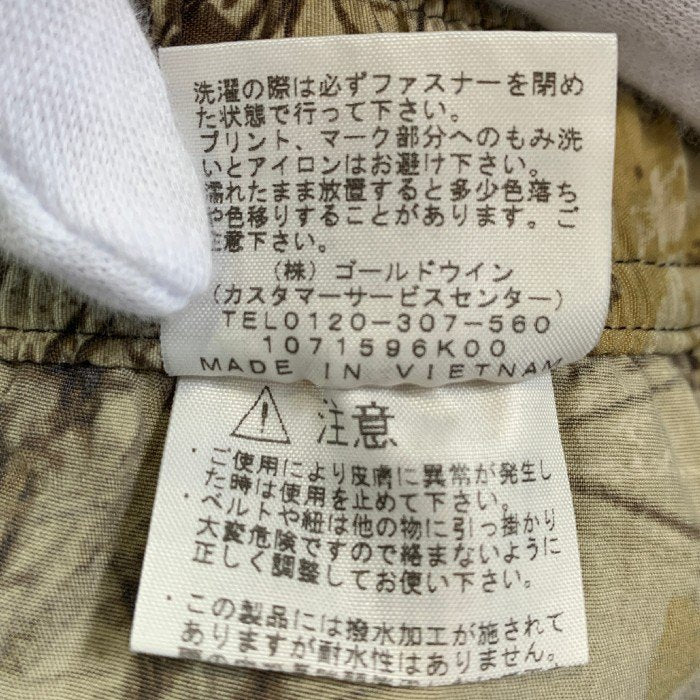 洗濯の際は必ずファスナーを閉め
た状態で行って下さい。
プリント、マーク部分へのもみ洗
いとアイロンはお避け下さい。
濡れたまま放置すると多少色落ち
や色移りすることがあります。ご
注意下さい。
(株) ゴールドウイン
(カスタマーサービスセンター)
TEL0120-307-560
1071596K00
MADE IN VIETNAM
注意
・ご使用により皮膚に異常が発生し
た時は使用を止めて下さい。
・ベルトや紐は他の物に引っ掛かり
大変危険ですので絡まないように
正しく調整してお使い下さい。
・この製品には撥水加工が施されて
ありますが耐水性はありません。